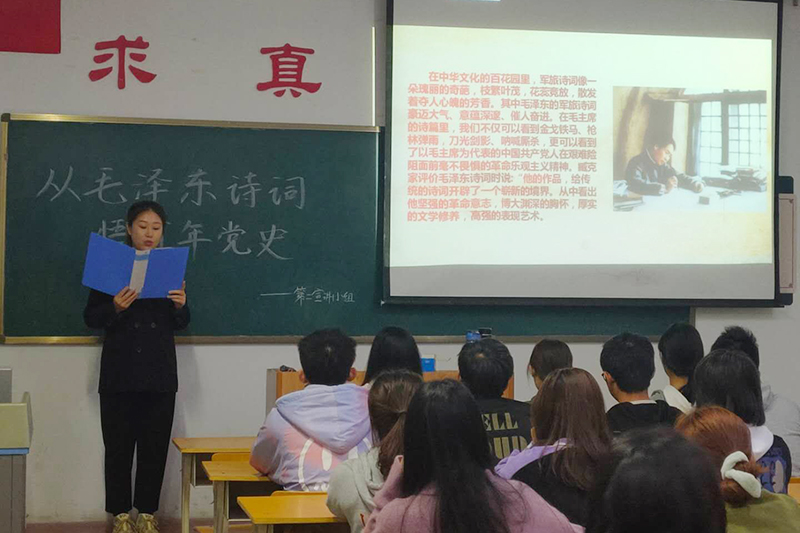 求 真
从毛泽东诗词
年党史
——第二宣讲小组
在中华文化的百花园里，军旅诗词像一
朵瑰丽的奇葩，枝繁叶茂，花蕊竞放，散发
着夺人心魄的芳香。其中毛泽东的军旅诗词
豪迈大气、意蕴深邃、催人奋进。在毛主席
的诗篇里，我们不仅可以看到金戈铁马、枪
林弹雨，刀光剑影、呐喊厮杀，更可以看到
了以毛主席为代表的中国共产党人在艰难险
阻面前毫不畏惧的革命乐观主义精神。臧克
家评价毛泽东诗词时说：“他的作品，给传
统的诗词开辟了一个崭新的境界。从中看出
他坚强的革命意志，博大渊深的胸怀，厚实
的文学修养，高强的表现艺术。
ELL